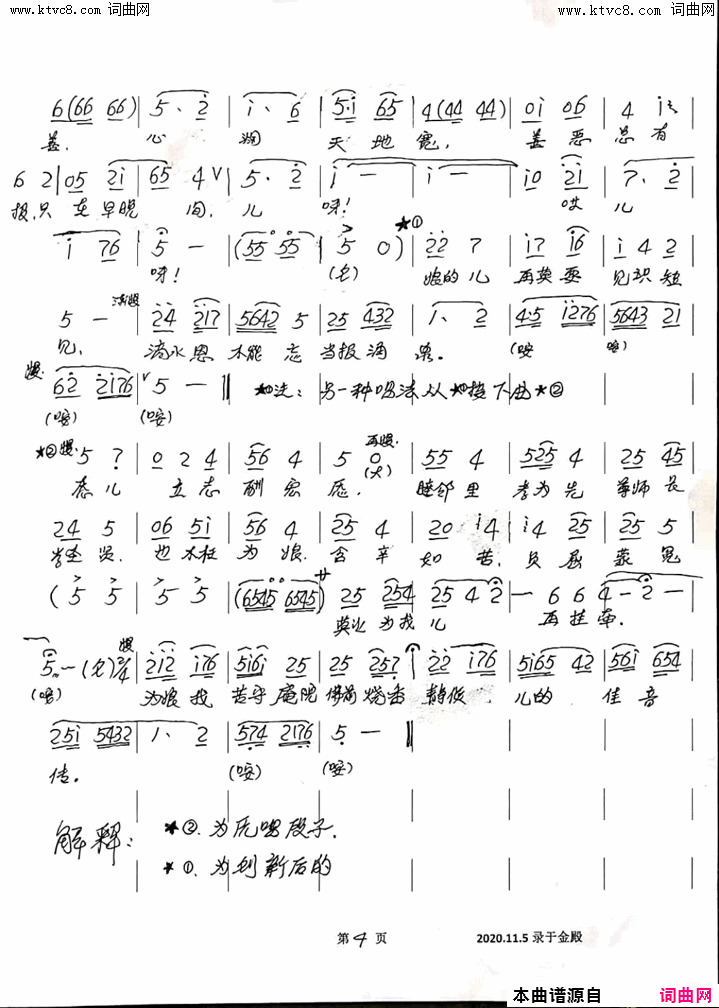 www.ktvc8.com 词曲网 www.ktvc8.com 词曲网
6 (66 66) | 5、 2 | i、 6 | 5·i 65 | 4 (44 44) | 0i 06 | 4 i
善. 心 阔 天 地 宽, 善 恶 总 有
6 2 | 05 2i | 65 4 V | 5、 2 | i — | i — | i0 2i | 7、 2
报,只 在 早晚 间, 儿 呀! 哎 儿
i 76 | 5 — | (55 55 | 5 0) | 22 7 | i7 i6 | i 4 2
呀! (仓) ★① 娘的儿 再莫要 见识短
5 — | 24 2i7 | 5642 5 | 25 432 | 1、 2 | 4·5 i276 | 5643 21
见, 渐慢 滴水恩 不能 忘 当报涌 泉. (哎)
慢: 62 2i76 | 5 — ‖ ★①注: 另一种唱法从★①接下曲★②
★②慢. 5 7 | 0 2 4 | 56 4 | 5 0 | 55 4 | 525 4 | 25 45
立志 酬宏 愿. 再慢. (大) 睦邻里 孝为先 尊师长
24 5 | 06 5i | 56 4 | 25 4 | 20 i4 | i4 25 | 25 5
也不枉 为娘. 含辛 如 苦. 负屈 蒙冤
(5 5 | 5 5 | (6545 6545) 25 254 25 4 2 — 6 6 4 — 2 —
莫必为我儿 再挂牵.
5 — (仓) 2/4 212 i76 | 5i6i 25 | 25 257 | 22 i76 | 5i65 42 | 56i 654
慢 为娘我 苦守庵院 佛前烧香 静候. 儿的 佳音
25i 5432 | 1、 2 | 574 2176 | 5 — ‖
传.
解释: ★②.为原唱段子.
★①.为创新后的
第4页 2020.11.5 录于金殿
本曲谱源自 词曲网